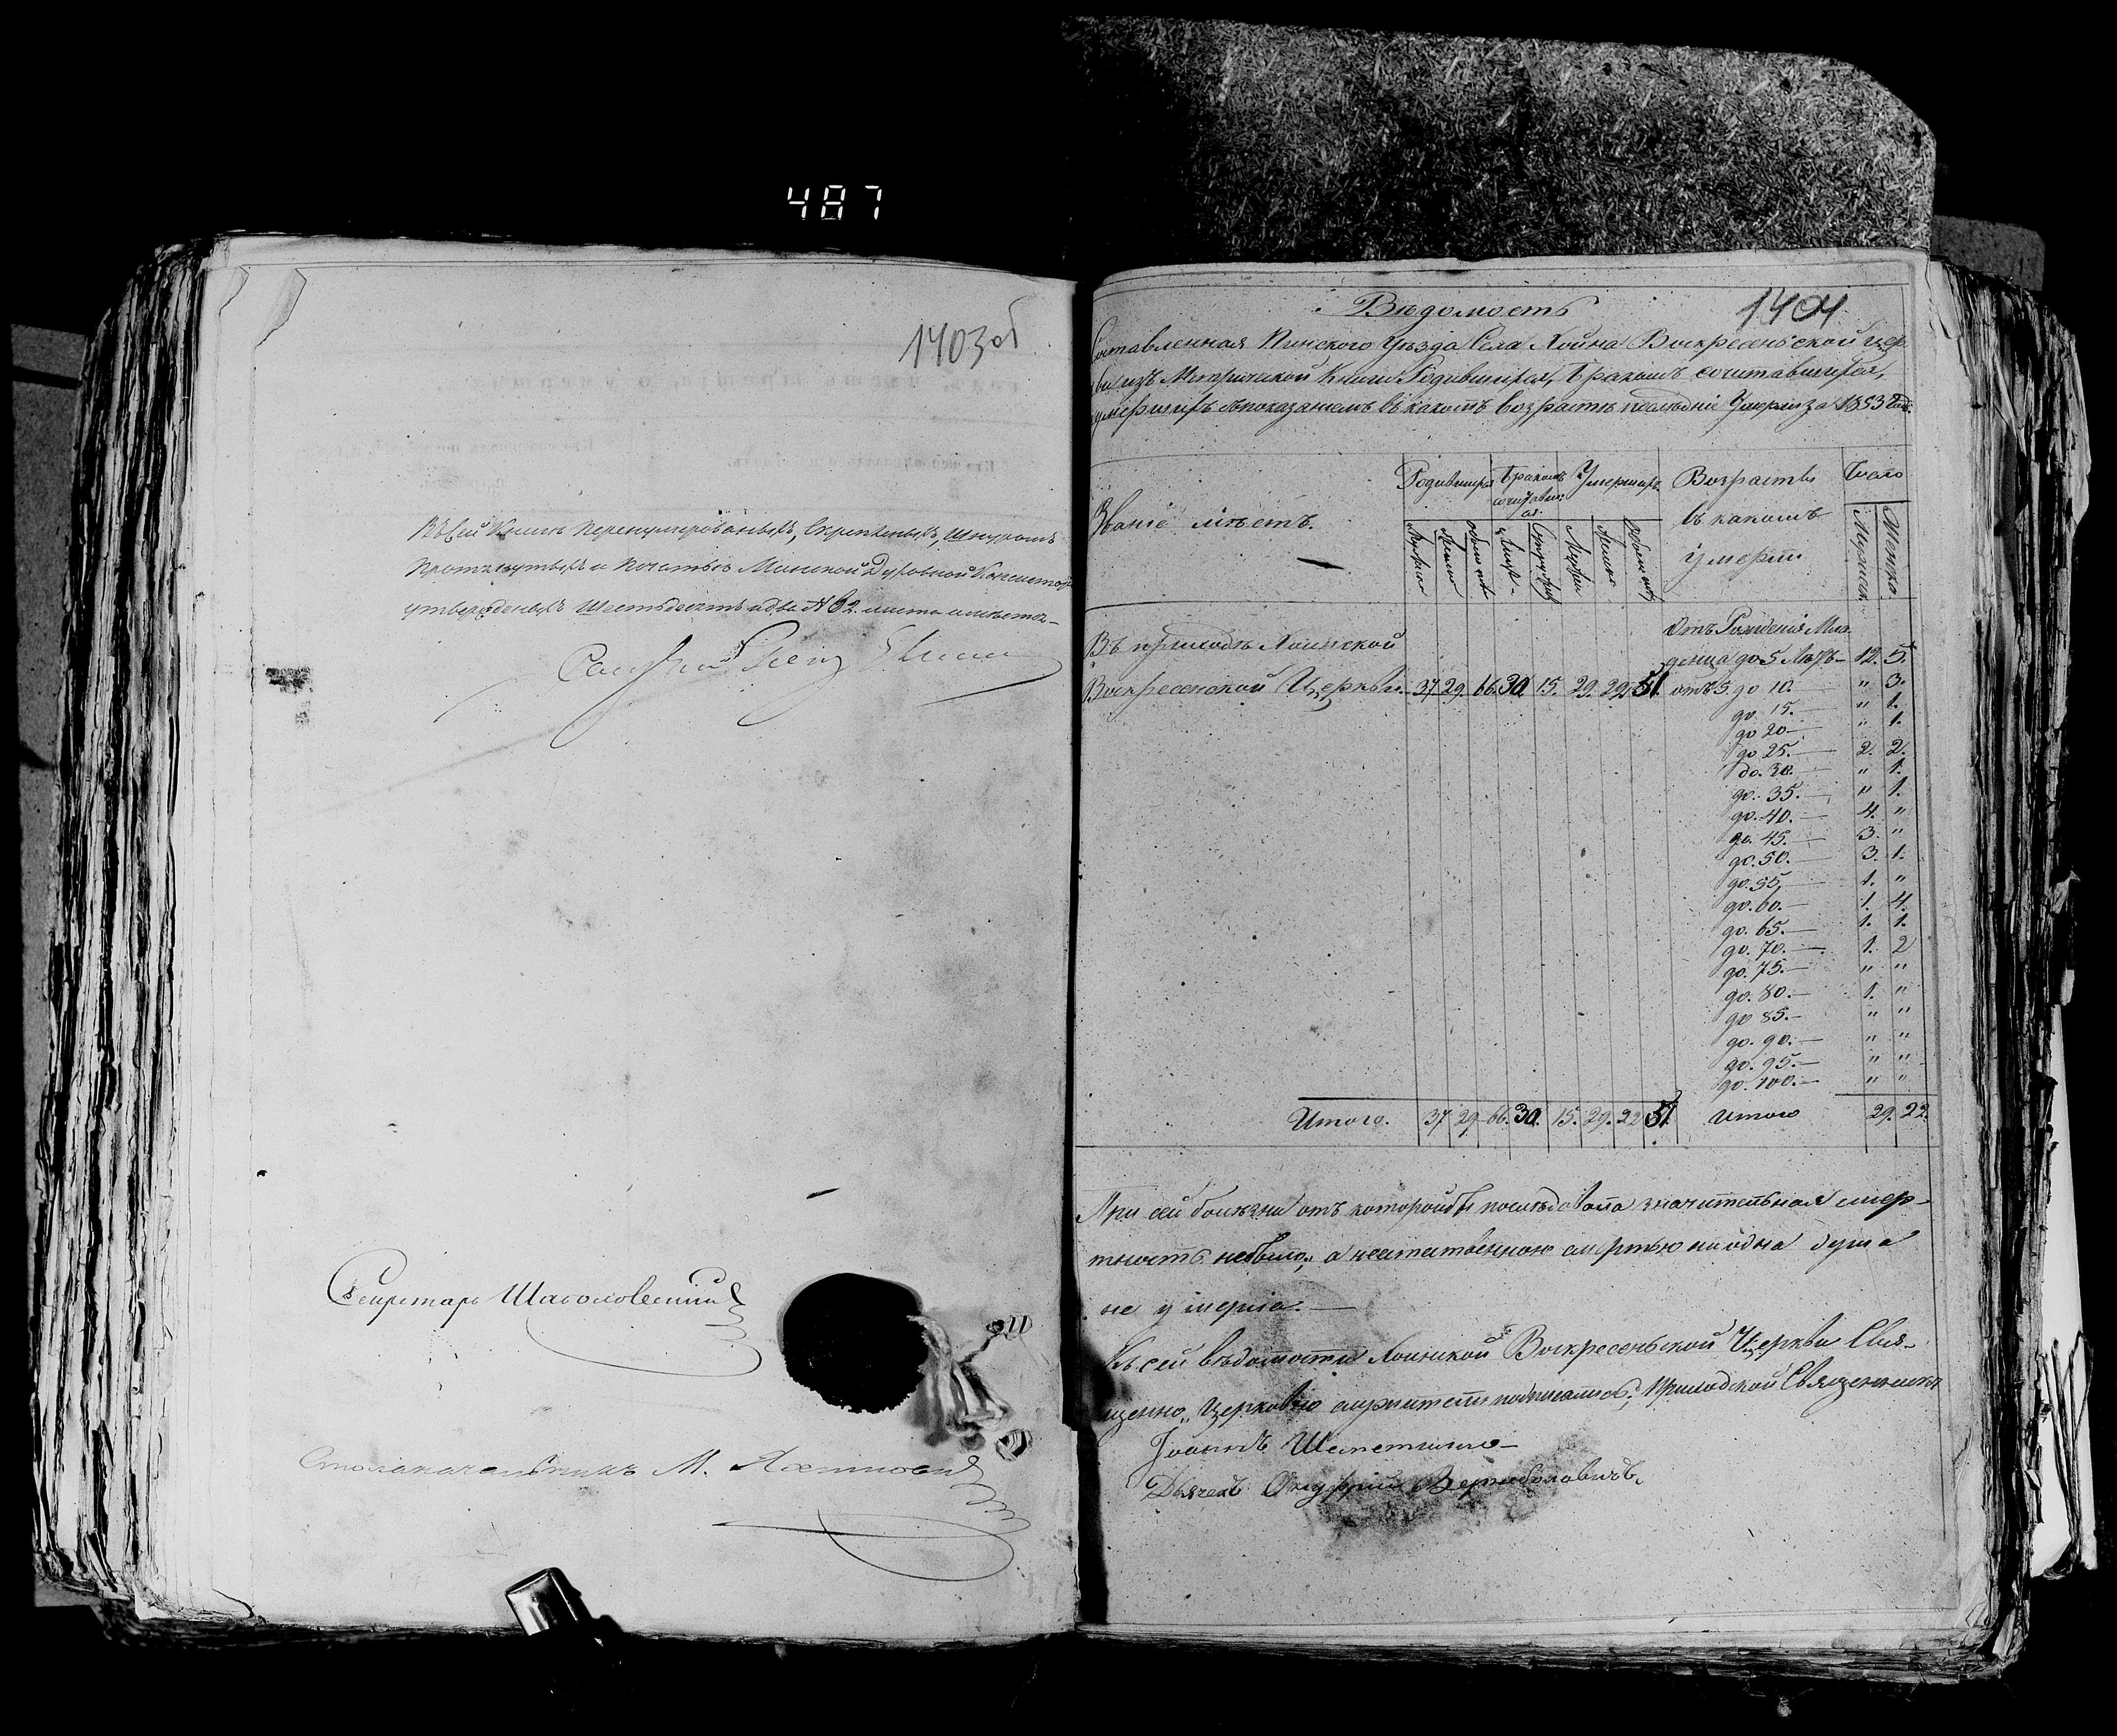 487
1403об
Въ сей Книгѣ перенумерованныхъ, Скрѣпленныхъ, Шнуромъ
протянутыхъ и печатью Минской Духовной Консисторіи
утвержденныхъ Шестьдесятъ два № 62. листа имѣется
Секретарь
Столоначальникъ М.
1404
Вѣдомость
Составленная Пинского Уѣзда Села Хойна Воскресеньской Цер
кви изъ Метрической Книги Родившихся, Бракомъ сочитавшихся,
умершихъ съ показаніемъ въ какомъ возрастѣ послѣдніе Умерли за 1853 Годъ.
Званіе мѣстъ.
Родившихся
Бракомъ сочитавших ся.
Умершихъ
Возрасты въ какомъ умерли
Число
Мужеска.
Женска.
Отъ Рожденія Мла
Въ приходѣ Хоинской
денца до 5 Лѣтъ — 12. 5.
Воскресенской Церкви. 37 29. 66. 30. 15. 29. 22. 51. отъ 5. до 10. — " 3.
до 15. — " 1.
до 20 — " 1.
до 25. — 2. 2.
до. 30. — " 1.
до. 35. — " 1.
до. 40. — 4. "
до. 45. — 3. "
до. 50. — 3. 1.
до. 55. — 1. "
до. 60. — 1. 4.
до. 65. — 1. 1.
до. 70. — 1. 2
до. 75. — " "
до. 80. — 1. "
до 85. — " "
до. 90. — " "
до. 95. — " "
до. 100. — " "
Итого. 37 29 66. 30. 15. 29. 22 51. Итого 29. 22.
При сей болезни отъ которой бы последовала значительная смер-
тность небыло; а неестественною смертью ни одна душа
не умерла. —
Къ сей вѣдомости Хоинской Воскресеньской Церкви Свя-
щенно „ Церковно служители подписались; Приходской Священникъ
Іоаннъ
Дьячекъ Онуфрій